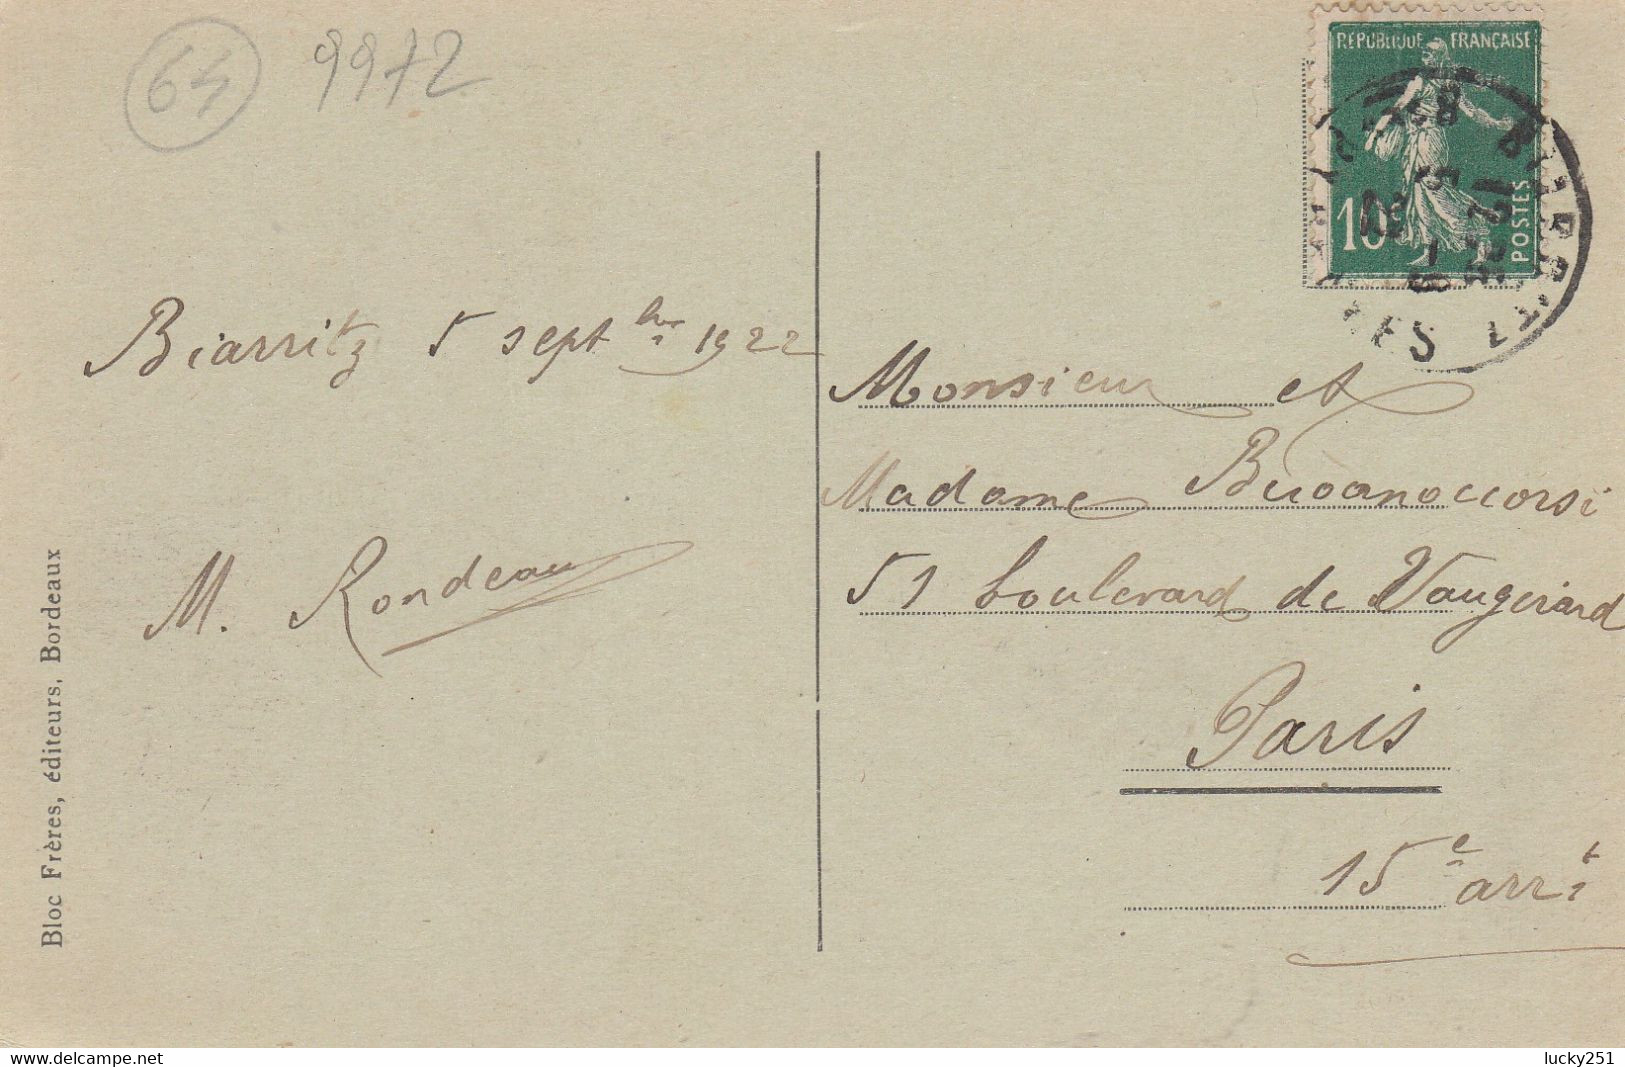 64 9972
REPUBLIQUE FRANÇAISE
10c
POSTES
Biarritz 5 septbre 1922
M. Rondeau
Bloc Frères, éditeurs, Bordeaux
Monsieur et
Madame Buoanoccorsi
51 boulevard de Vaugirard
Paris
15e arrt
delcampe.net
lucky251